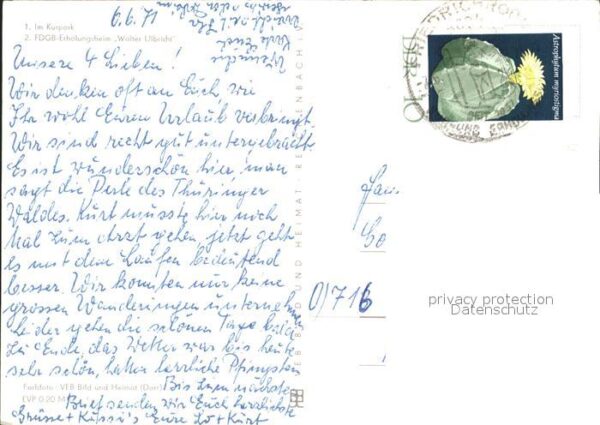 6.6.71
1. Im Kurpark
2. FDGB-Erholungsheim „Walter Ulbricht"
Unsere 4 Lieben!
Wir denken oft an Euch, wie
Ihr wohl Euren Urlaub verbringt.
Wir sind recht gut untergebracht
Es ist wunderschön hier, man
sagt die Perle des Thüringer
Waldes. Kurt musste hier noch
mal zum Arzt gehen jetzt geht
es mit dem Laufen bedeutend
besser. Wir konnten nur keine
grossen Wanderungen unternehmen
Leider gehen die schönen Tage bald
zu Ende, das Wetter war bis heute
sehr schön, hatten herrliche Pfingsten
Farbfoto: VEB Bild und Heimat
Bis zum nächsten
EVP 0,20 M
Brief senden wir Euch herzlichste
Grüsse + Küssi's Eure Lo + Kurt
VEB BILD UND HEIMAT REICHENBACH
DDR 10
Astrophytum myriostigma
Fam.
716
privacy protection
Datenschutz